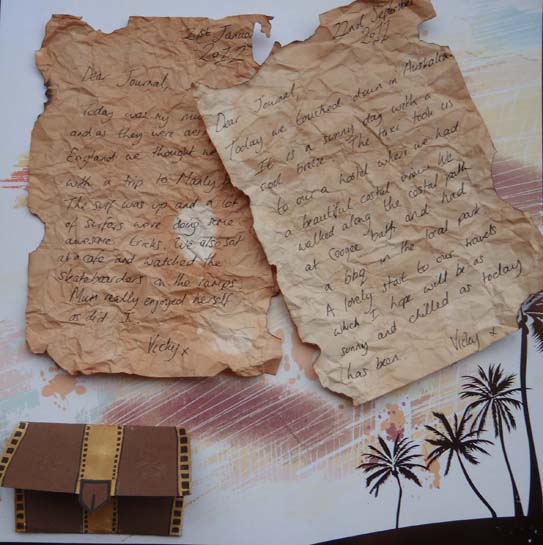 21st Janua
2012
Dear Journal,
Today was my mu
and as they were
England we thought we
with a trip to Manly
The surf was up and a lot
of surfers were doing some
awesome tricks. We also sat
at a cafe and watched the
skateboarders on the ramps
Mum really enjoyed herself
as did I
Vicky x
22nd September
2011
Dear Journal,
Today we touched down in Australia
It is a sunny day with a
cool breeze. The taxi took us
to our a hostel where we had
a beautiful costal view. We
walked along the costal path
at Coogee bath and had
a bbq in the local park
A lovely start to our travels
which I hope will be as
sunny and chilled as today
has been.
Vicky x